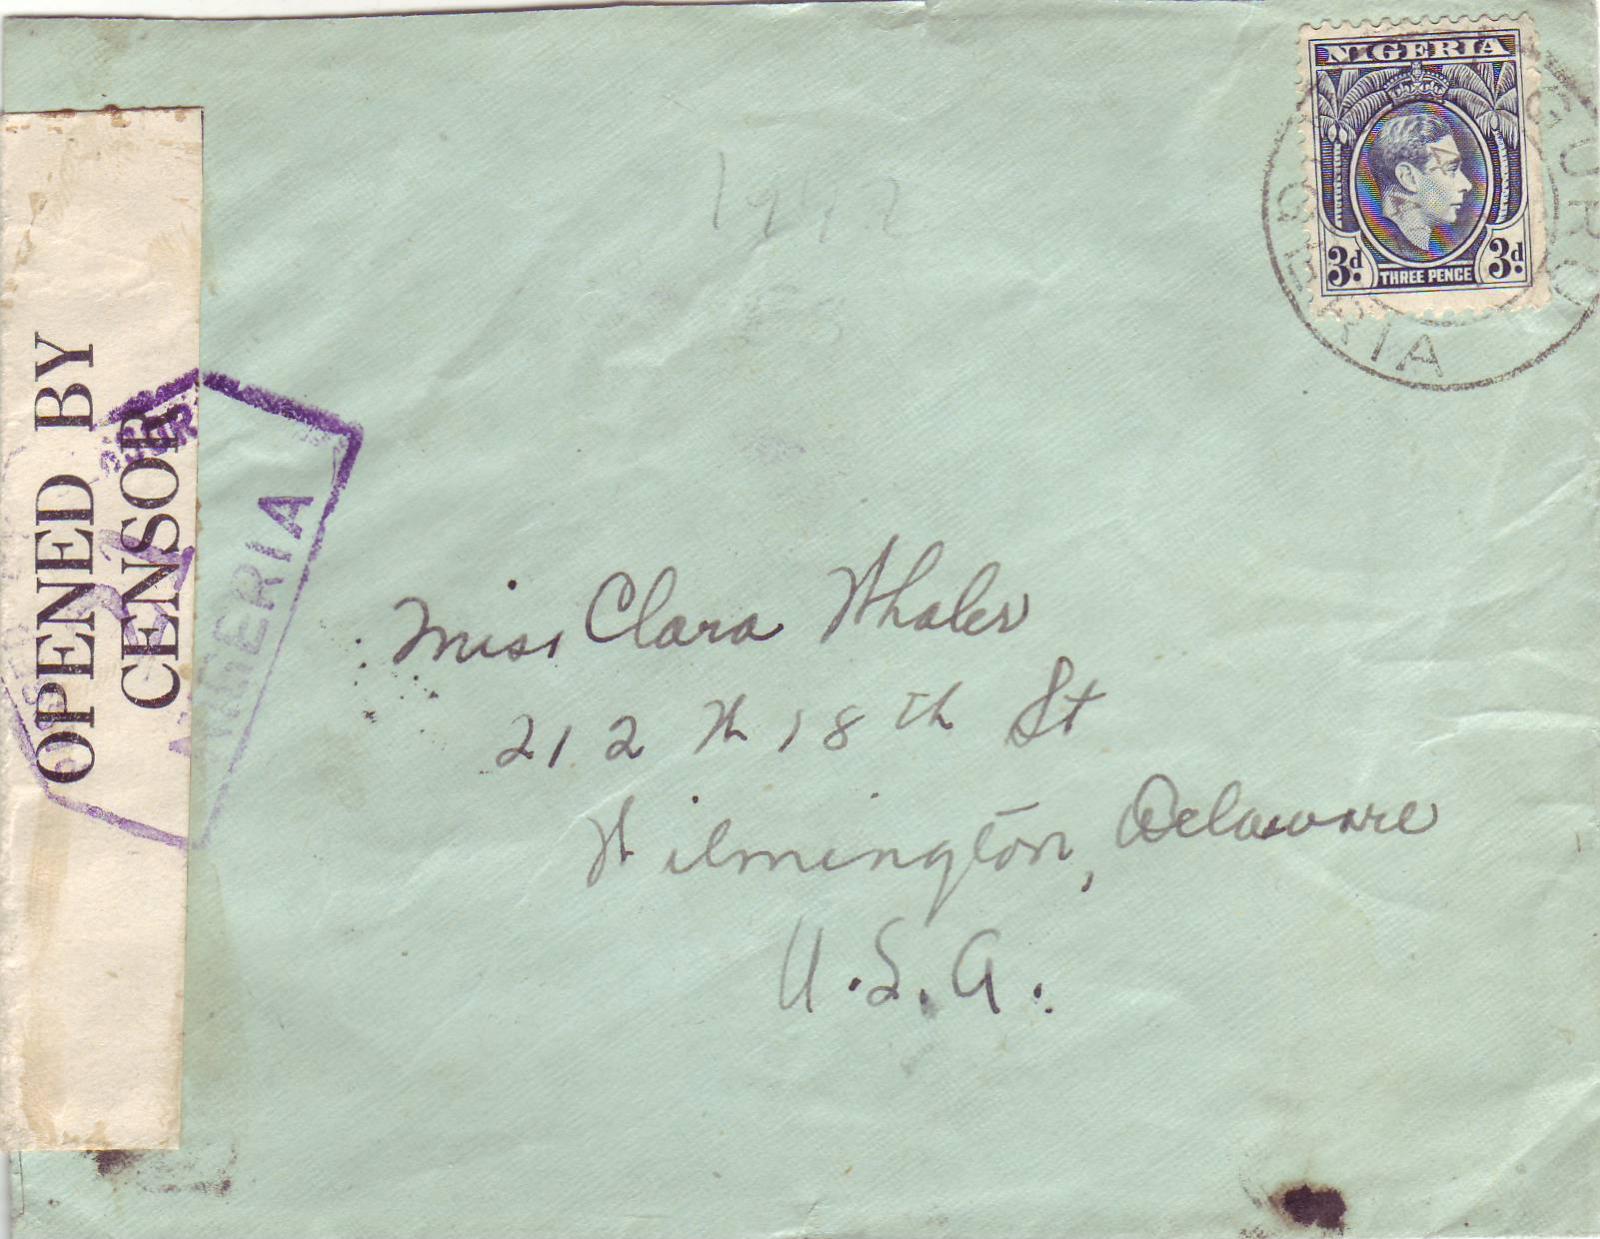 NIGERIA
3d. THREE PENCE 3d.
NIGERIA
OPENED BY
CENSOR
NIGERIA
Miss Clara Whaler
212 W 18th St
Wilmington, Delaware
U.S.A.